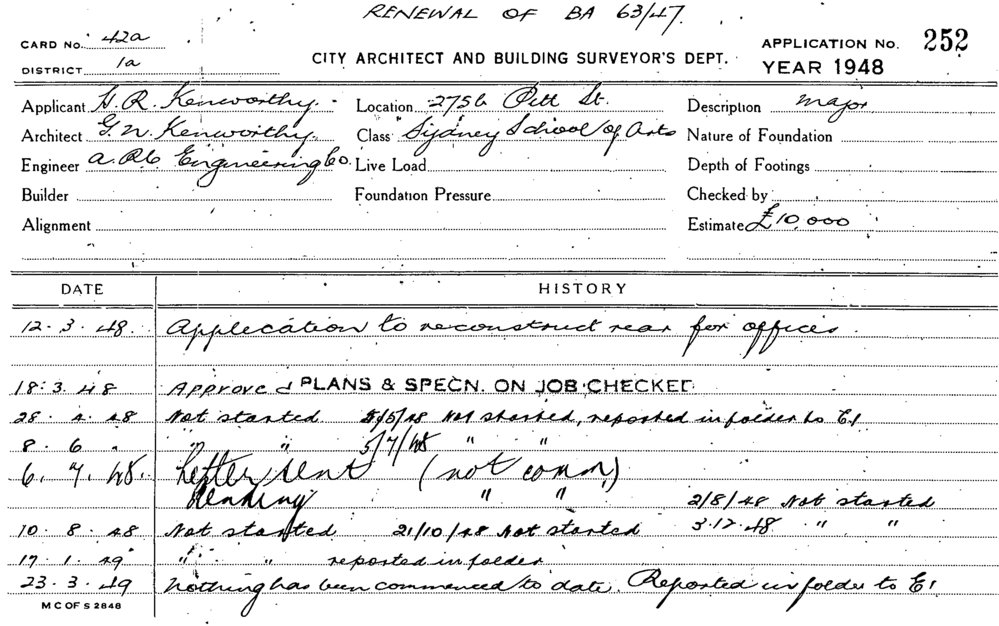 RENEWAL OF BA 63/47.
CARD No. 42a
DISTRICT 1a
CITY ARCHITECT AND BUILDING SURVEYOR'S DEPT.
APPLICATION No. 252
YEAR 1948
Applicant G. R. Kenworthy. Location 275b Pitt St. Description major
Architect G. N. Kenworthy. Class Sydney School of Arts Nature of Foundation
Engineer Engineering Co. Live Load Depth of Footings
Builder Foundation Pressure Checked by
Alignment Estimate £10,000
DATE HISTORY
12.3.48. Application to reconstruct rear for offices.
18.3.48 Approved PLANS & SPECN. ON JOB CHECKED
28.4.48 Not started /5/48 Not started, reported in folder to E1
8.6 " " " 5/7/48 " "
6.7.48. Letter sent (not comm.)
Pending " " 2/8/48 Not started
10.8.48 Not started 21/10/48 Not started 3.12.48 " "
17.1.49 " " reported in folder
23.3.49 Nothing has been commenced to date. Reported in folder to E1
M C OF S 2848